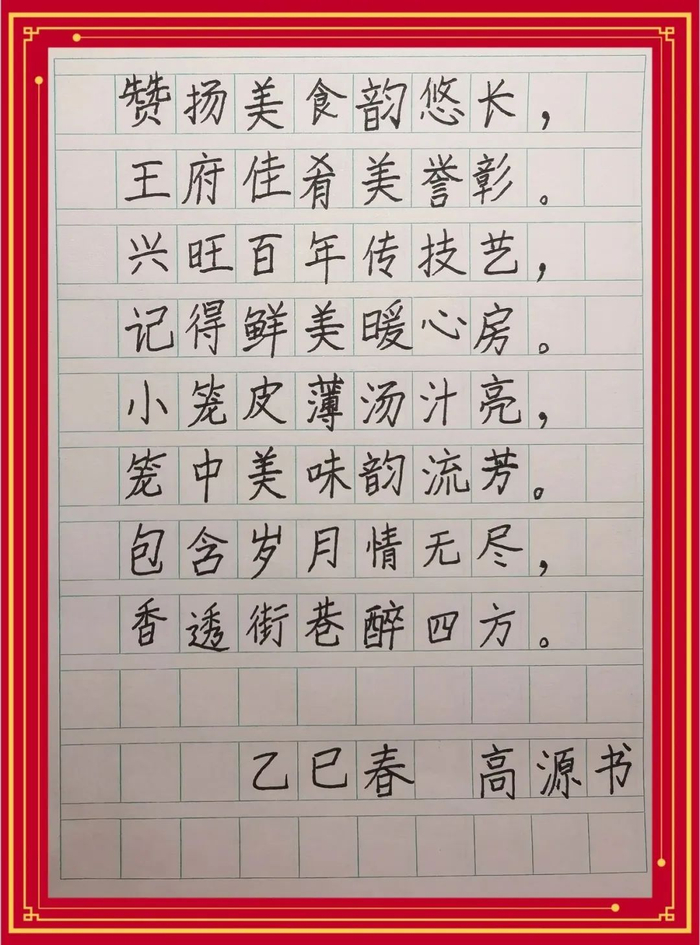 赞扬美食韵悠长，
王府佳肴美誉彰。
兴旺百年传技艺，
记得鲜美暖心房。
小笼皮薄汤汁亮，
笼中美味韵流芳。
包含岁月情无尽，
香透街巷醉四方。
乙巳春 高源书